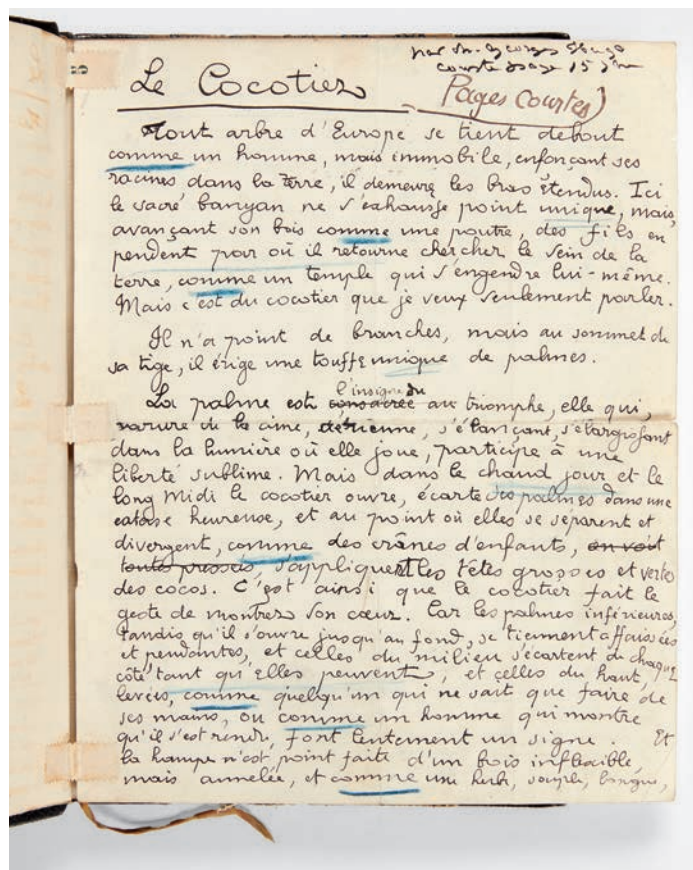 par M. Georges
courte page 15 j
Le Cocotier
Pages Courtes)
Tout arbre d'Europe se tient debout
comme un homme, mais immobile, enfonçant ses
racines dans la terre, il demeure les bras étendus. Ici
le sacré banyan ne s'exhausse point unique, mais,
avançant son bois comme une poutre, des fils en
pendent par où il retourne chercher le sein de la
terre, comme un temple qui s'engendre lui-même.
Mais c'est du cocotier que je veux seulement parler.
Il n'a point de branches, mais au sommet de
sa tige, il érige une touffe unique de palmes.
l'insigne du
La palme est consacrée au triomphe, elle qui,
de la cime, aérienne, s'élançant, s'élargissant
dans la lumière où elle joue, participe à une
liberté sublime. Mais dans le chaud jour et le
long Midi le cocotier ouvre, écarte ses palmes dans une
extase heureuse, et au point où elles se séparent et
divergent, comme des crânes d'enfants, on voit
toutes pressées s'appliquent les têtes grosses et vertes
des cocos. C'est ainsi que le cocotier fait le
geste de montrer son cœur. Car les palmes inférieures,
tandis qu'il s'ouvre jusqu'au fond, se tiennent affaissées
et pendantes, et celles du milieu s'écartent de chaque
côté tant qu'elles peuvent, et celles du haut,
levées, comme quelqu'un qui ne sait que faire de
ses mains, ou comme un homme qui montre
qu'il s'est rendu, font lentement un signe. Et
la hampe n'est point faite d'un bois inflexible,
mais annelée, et comme une herbe, souple, longue,